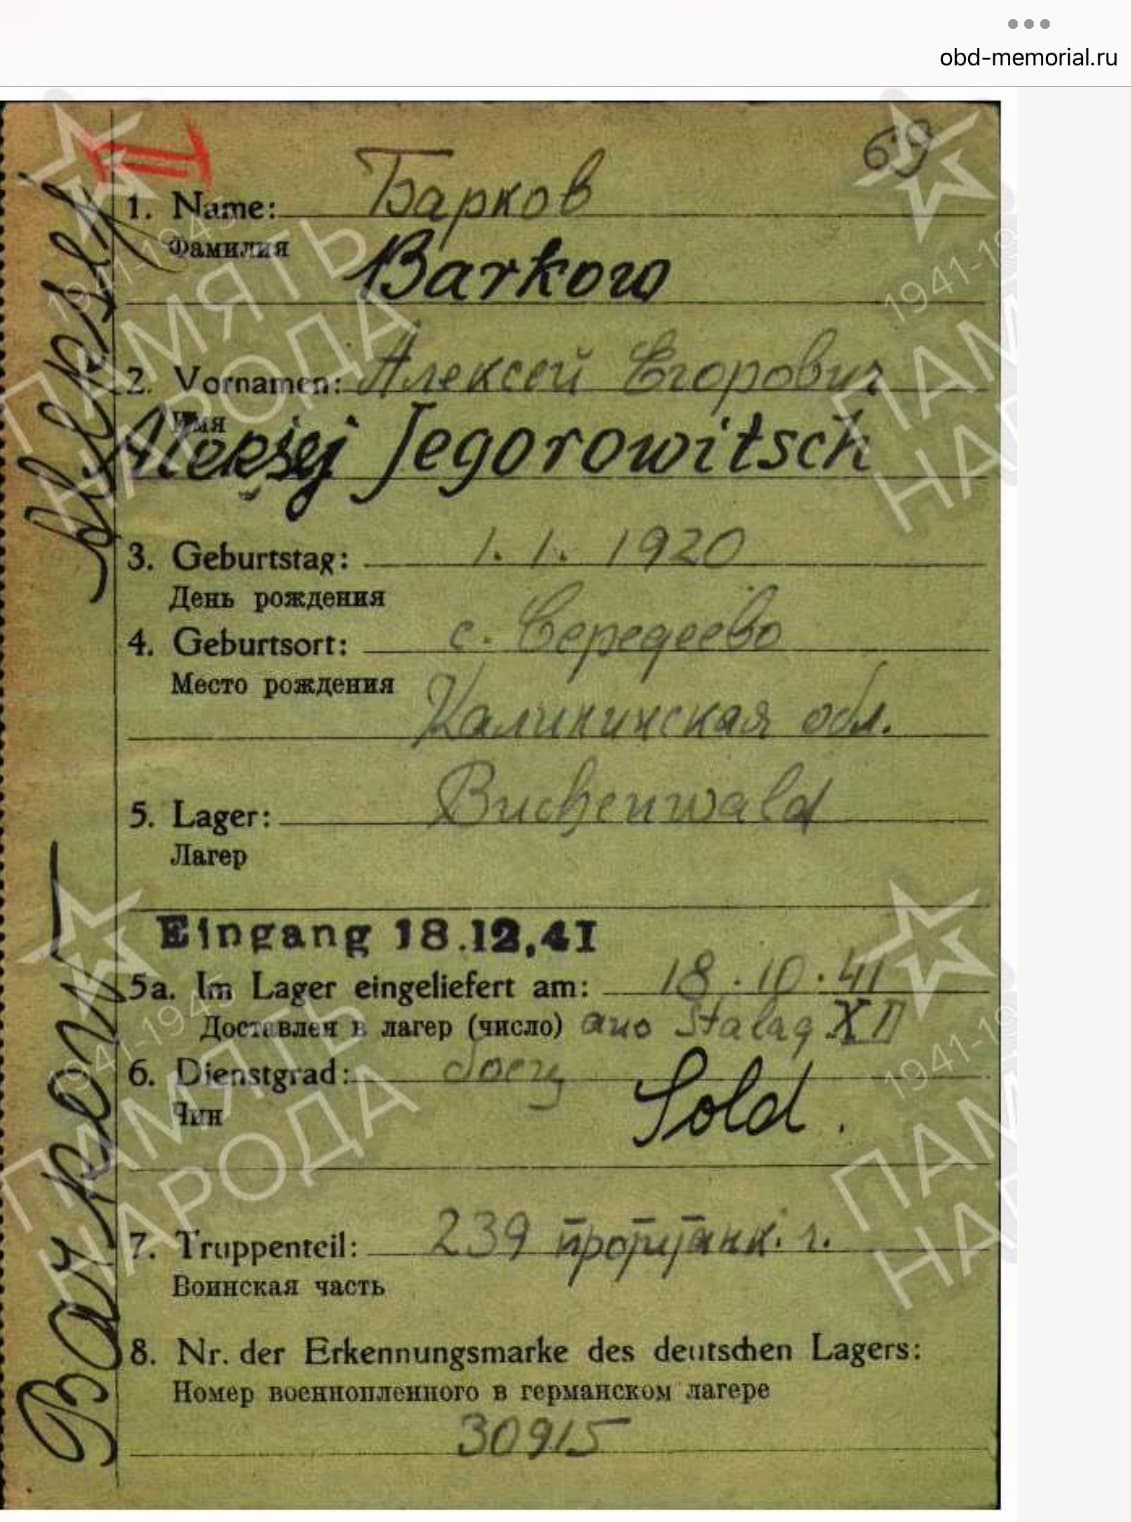 obd-memorial.ru
II
69
1. Name: Барков
Фамилия
Barkow
2. Vornamen: Алексей Егорович
Имя
Aleksej Jegorowitsch
3. Geburtstag: 1. 1. 1920
День рождения
4. Geburtsort: с. Середеево
Место рождения
Калининская обл.
5. Lager: Buchenwald
Лагер
Eingang 18.12.41
5a. Im Lager eingeliefert am: 18.10.41
Доставлен в лагер (число) aus Stalag
6. Dienstgrad: боец
Чин
Sold.
7. Truppenteil: 239
Воинская часть
8. Nr. der Erkennungsmarke des deutschen Lagers:
Номер военнопленного в германском лагере
30915
Barkow Aleksej
ПАМЯТЬ
НАРОДА
1941-1945